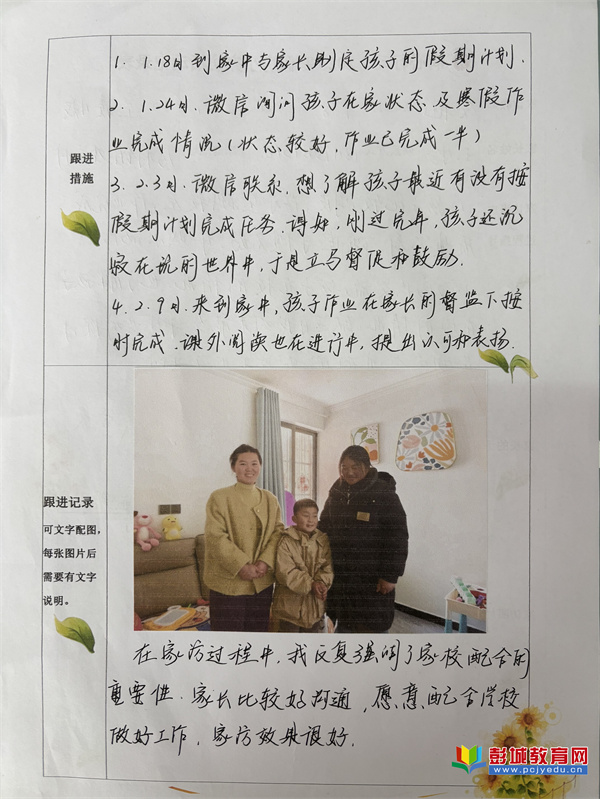 跟进
措施
1. 1.18日到家中与家长制定孩子的假期计划.
2. 1.24日.微信询问孩子在家状态及寒假作
业完成情况(状态较好,作业已完成一半)
3. 2.3日.微信联系.想了解孩子最近有没有按
假期计划完成任务.得知,刚过完年,孩子还沉
在玩的世界中,于是立马督促和鼓励.
4. 2.9日.来到家中,孩子作业在家长的督监下按
时完成.课外阅读也在进行中,提出认可和表扬.
跟进记录
可文字配图,
每张图片后
需要有文字
说明。
在家访过程中,我反复强调了家校配合的
重要性.家长比较好沟通,愿意配合学校
做好工作,家访效果很好.
彭城教育网
www.pcjyedu.cn